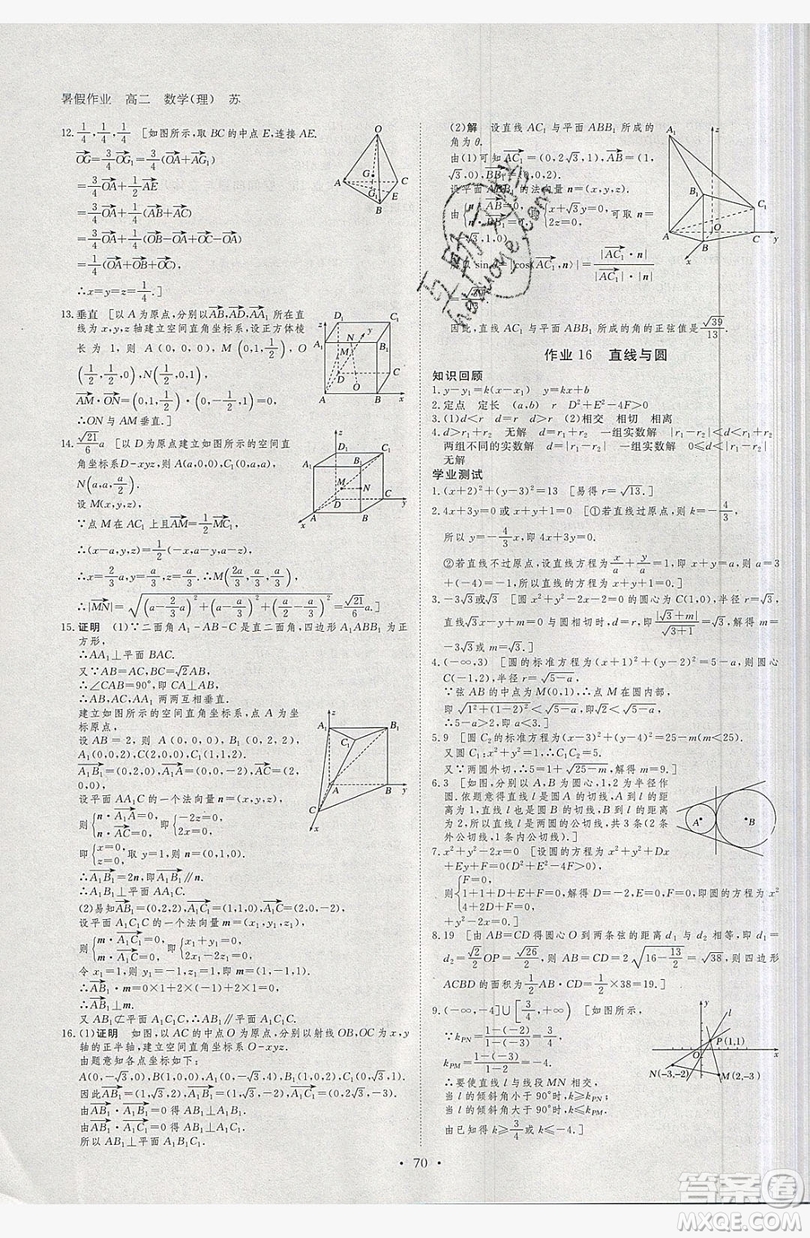 暑假作业 高二 数学(理) 苏
12. 1/4, 1/4, 1/4 [如图所示,取 BC 的中点 E,连接 AE.
OG→=3/4 OG₁→=3/4(OA→+AG₁→)
=3/4 OA→+1/2 AE→
=3/4 OA→+1/4(AB→+AC→)
=3/4 OA→+1/4(OB→-OA→+OC→-OA→)
=1/4(OA→+OB→+OC→),
∴x=y=z=1/4.]
13. 垂直 [以 A 为原点,分别以AB→,AD→,AA₁→所在直
线为 x,y,z 轴建立空间直角坐标系,设正方体棱
长为 1,A(0,0,0),M(0,1,1/2),O
(1/2,1/2,0),N(1/2,0,1).
AM→·ON→=(0,1,1/2)·(0,-1/2,1)=0,
∴ON 与 AM 垂直.]
14. √21/6 a [以 D 为原点建立如图所示的空间直
角坐标系D-xyz,则A(a,0,0),C₁(0,a,a),
N(a,a,a/2).
设 M(x,y,z),
∵点 M 在 AC₁ 上且AM→=1/2 MC₁→,
∴(x-a,y,z)=1/2(-x,a-y,a-z)
∴x=2/3 a,y=a/3,z=a/3.∴M(2a/3,a/3,a/3),
∴|MN→|=√((a-2/3 a)²+(a-a/3)²+(a/2-a/3)²)=√21/6 a.]
15. 证明 (1)∵二面角 A₁-AB-C 是直二面角,四边形 A₁ABB₁ 为正
方形,
∴AA₁⊥平面 BAC.
又∵AB=AC,BC=√2AB,
∴∠CAB=90°,即 CA⊥AB,
∴AB,AC,AA₁ 两两互相垂直.
建立如图所示的空间直角坐标系,点 A 为坐
标原点,
设 AB=2,则 A(0,0,0),B₁(0,2,2),
A₁(0,0,2),C(2,0,0),C₁(1,1,2).
A₁B₁→=(0,2,0),A₁A→=(0,0,-2),AC→=(2,0,0),
设平面 AA₁C 的一个法向量 n=(x,y,z),
则{n·A₁A→=0, n·AC→=0, 即{-2z=0, 2x=0,
即{x=0, z=0, 取 y=1,则 n=(0,1,0).
∴A₁B₁→=2n,即A₁B₁→∥n.
∴A₁B₁⊥平面 AA₁C.
(2)易知AB₁→=(0,2,2),A₁C₁→=(1,1,0),A₁C→=(2,0,-2),
设平面 A₁C₁C 的一个法向量 m=(x₁,y₁,z₁),
则{m·A₁C₁→=0, m·A₁C→=0, 即{x₁+y₁=0, 2x₁-2z₁=0,
令 x₁=1,则 y₁=-1,z₁=1,即 m=(1,-1,1).
∴AB₁→·m=0×1+2×(-1)+2×1=0,
∴AB₁→⊥m.
又 AB₁⊄平面 A₁C₁C,∴AB₁∥平面 A₁C₁C.
16. (1)证明 如图,以 AC 的中点 O 为原点,分别以射线 OB,OC 为 x,y
轴的正半轴,建立空间直角坐标系 O-xyz.
由题意知各点坐标如下:
A(0,-√3,0),B(1,0,0),A₁(0,-√3,4),B₁(1,0,2),C₁(0,√3,1).
因此AB₁→=(1,√3,2),A₁B₁→=(1,√3,-2),A₁C₁→=(0,2√3,-3).
由AB₁→·A₁B₁→=0 得 AB₁⊥A₁B₁.
由AB₁→·A₁C₁→=0 得 AB₁⊥A₁C₁.
所以 AB₁⊥平面 A₁B₁C₁.
(2)解 设直线 AC₁ 与平面 ABB₁ 所成的
角为 θ.
由(1)可知AC₁→=(0,2√3,1),AB→=(1,
√3,0),BB₁→=(0,0,2).
设平面 ABB₁ 的法向量 n=(x,y,z).
由{n·AB→=0, n·BB₁→=0, 即{x+√3y=0, 2z=0, 可取 n=
(-√3,1,0).
所以 sin θ=|cos⟨AC₁→,n⟩|=|AC₁→·n|/|AC₁→||n|
因此,直线 AC₁ 与平面 ABB₁ 所成的角的正弦值是 √39/13.
作业 16 直线与圆
知识回顾
1. y-y₁=k(x-x₁)
2. 定点 定长 (a,b) r D²+E²-4F>0
3. (1)d<r d=r d>r (2)相交 相切 相离
4. d>r₁+r₂ 无解 d=r₁+r₂ 一组实数解 |r₁-r₂|<d<r₁+r₂
两组不同的实数解 d=|r₁-r₂| 一组实数解 0≤d<|r₁-r₂|
无解
学业测试
1. (x+2)²+(y-3)²=13 [易得 r=√13.]
2. 4x+3y=0 或 x+y+1=0 [①若直线过原点,则 k=-4/3,
所以 y=-4/3 x,即 4x+3y=0.
②若直线不过原点,设直线方程为 x/a+y/a=1,即 x+y=a.则 a=3
+(-4)=-1,所以直线的方程为 x+y+1=0.]
3. -3√3或√3 [圆 x²+y²-2x-2=0 的圆心为 C(1,0),半径 r=√3,
因为直线 √3x-y+m=0 与圆相切时,d=r,所以 |√3+m|/√(3+1)=√3.]
4. (-∞,3) [圆的标准方程为(x+1)²+(y-2)²=5-a,则圆心
C(-1,2),半径 r=√(5-a),
∵弦 AB 的中点为 M(0,1),∴点 M 在圆内部,
即 √(1²+(1-2)²)<√(5-a),
∴5-a>2,即 a<3.]
5. 9 [圆 C₂ 的标准方程为(x-3)²+(y-4)²=25-m(m<25).
又圆 C₁:x²+y²=1,∴|C₁C₂|=5.
又∵两圆外切,∴5=1+√(25-m),解得 m=9.]
6. 3 [如图,分别以 A,B 为圆心,1,2 为半径作
图.依题意得直线 l 是圆 A 的切线,A 到 l 的距
离为 1;直线 l 也是圆 B 的切线,B 到 l 的距离
为 2.所以直线 l 是两圆的公切线,共 3 条(2 条
外公切线,1 条内公切线).]
7. x²+y²-2x=0 [设圆的方程为 x²+y²+Dx+
Ey+F=0(D²+E²-4F>0),则
{F=0, 1+1+D+E+F=0, 4+2D+F=0, 解得 D=-2,E=0,F=0,即圆的方程为
x²+y²-2x=0.]
8. 19 [由 AB=CD 得圆心 O 到两条弦的距离 d₁ 与 d₂ 相等,则 d₁=d₂
=√2/2 OP=√26/2,所以 AB=CD=2√(16-(√26/2)²)=√38,所以四边形
ACBD 的面积为 1/2×38=19.]
9. (-∞,-4]∪[3/4,+∞) [如图所示,
∵k_PN=(1-(-2))/(1-(-3))=3/4,
k_PM=(1-(-3))/(1-2)=-4,
∴要使直线 l 与线段 MN 相交,
当 l 的倾斜角小于 90°时,k≥k_PN;
当 l 的倾斜角大于 90°时,k≤k_PM,
由已知得 k≥3/4 或 k≤-4.]
P(1,1)
N(-3,-2)
M(2,-3)
• 70 •
答案圈
MXQE.COM